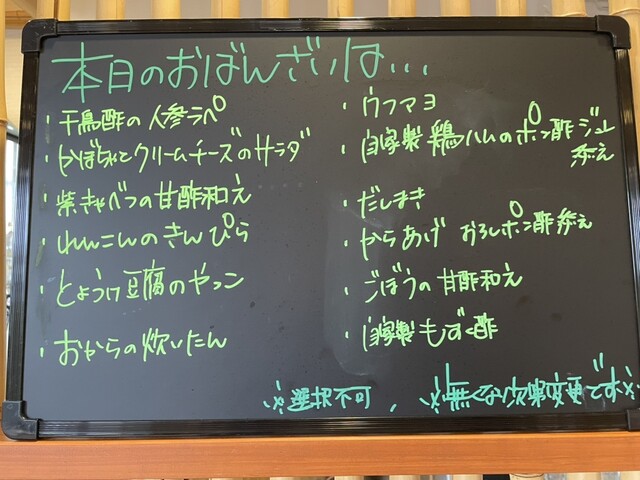 本日のおばんざいは...
・千鳥酢の人参ラペ
・かぼちゃとクリームチーズのサラダ
・紫きゃべつの甘酢和え
・れんこんのきんぴら
・とようけ豆腐のやっこ
・おからの炊いたん
・ウフマヨ
・自家製鶏ハムのポン酢ジュレ
添え
・だしまき
・からあげ おろしポン酢添え
・ごぼうの甘酢和え
・自家製もずく酢
※選択不可、※無くなり次第変更です※